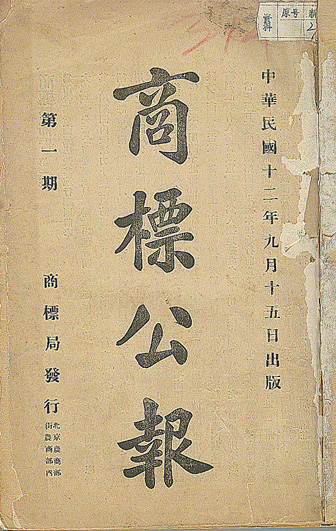 中華民國十二年九月十五日出版
商標公報
第一期
商標局發行
北京農商部
街農商部西
原号
資料